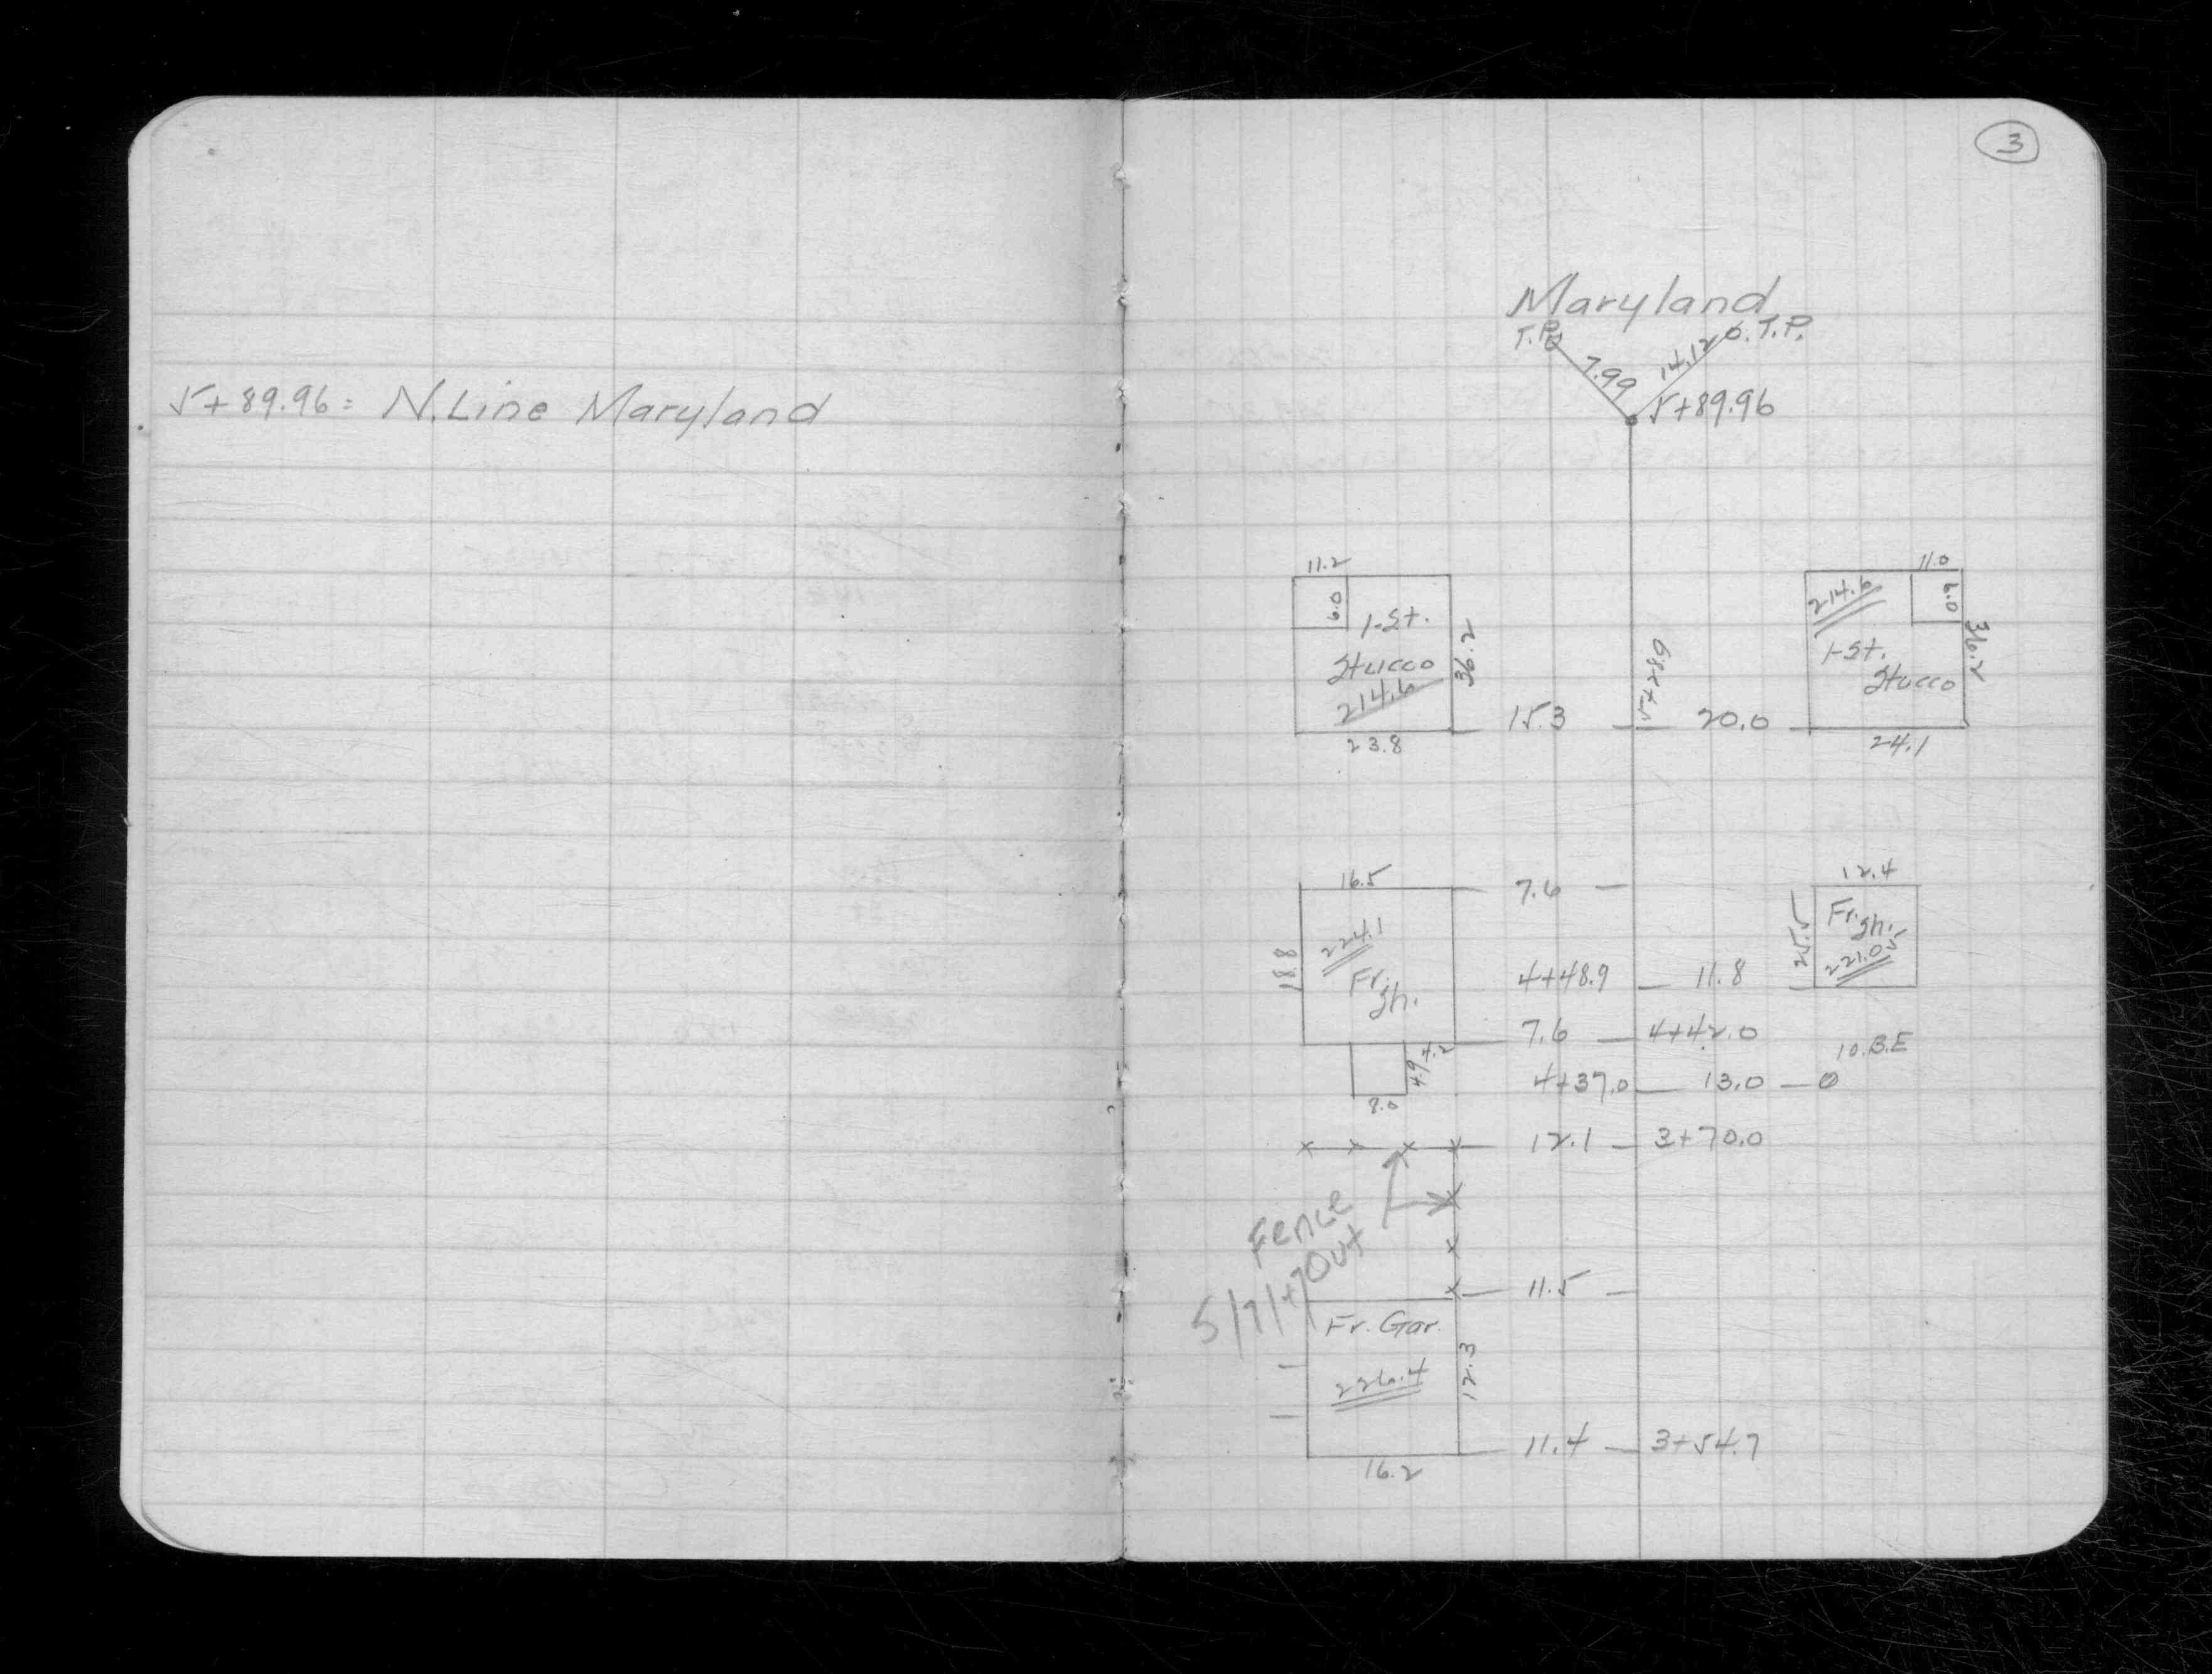 5+89.96 = N.Line Maryland
3
Maryland
T.P. 7.99 14.12 T.P.
5+89.96
11.2
6.0
1-St.
Stucco
214.6
36.2
23.8
15.3
5+28.9
20.0
11.0
6.0
214.6
1-St.
Stucco
36.2
24.1
16.5
7.6
12.4
18.8
224.1
Fr.
sh.
25.5
Fr. sh.
221.05
4+48.9 11.8
7.6 4+42.0
4.2
4.9
8.0
10.B.E
4+37.0 13.0
12.1 3+70.0
Fence
Out
5/7/47
11.5
Fr. Gar.
226.4
12.3
11.4 3+54.7
16.2